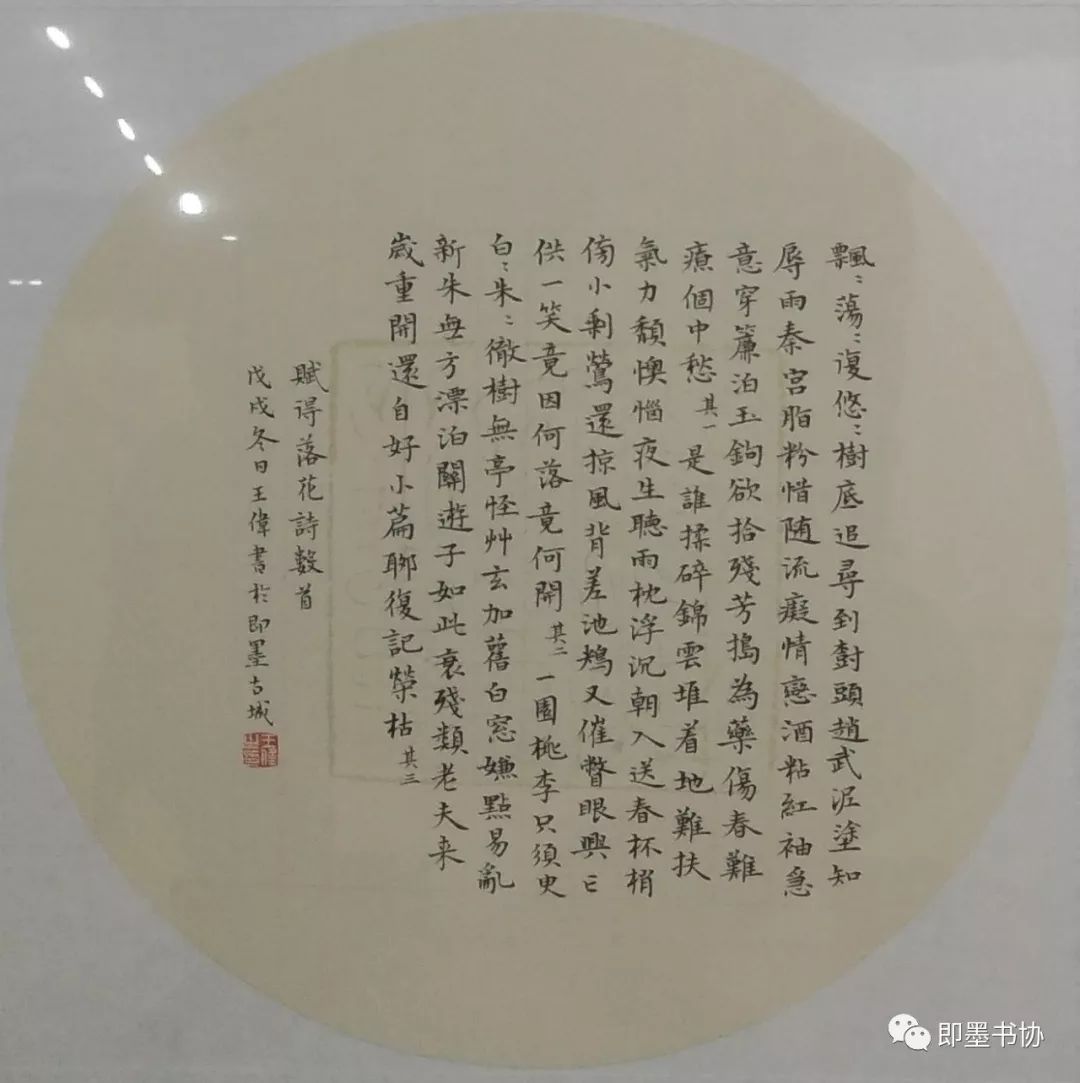 飄〻蕩〻復悠〻樹底追尋到樹頭趙武泥塗知
辱雨秦宫脂粉惜随流癡情戀酒粘紅袖急
意穿簾泊玉鉤欲拾殘芳搗為藥傷春難
療個中愁其一是誰揉碎錦雲堆着地難扶
氣力頹懊惱夜生聽雨枕浮沉朝入送春杯梢
傍小剩鶯還掠風背差池鷓又催瞥眼興亡
供一笑竟因何落竟何開其二一園桃李只須臾
白〻朱〻徹樹無亭怪艸玄加舊白窓嫌點易亂
新朱無方漂泊關遊子如此衰殘類老夫来
歲重開還自好小篇聊復記榮枯其三
賦得落花詩數首
戊戌冬日王偉書於即墨古城
即墨书协